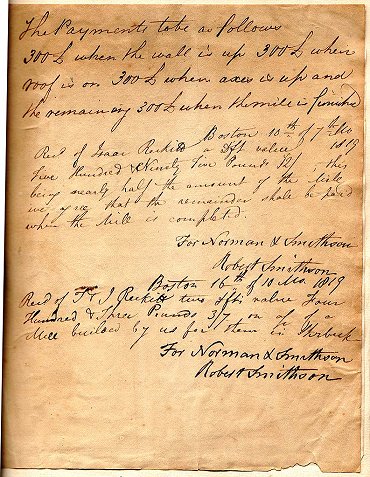 The Payments to be as follows
300£ when the wall is up 300£ when
roof is on 300£ when axes is up and
the remaining 300£ when the mile is finished
Boston 10th of 7th Mo 1819
Recd of Isaac Reckitt a Dft value
Five Hundred & Ninety Five Pounds this
being nearly half the amount of the Mile
we agree that the remainder shall be paid
when the Mill is completed
For Norman & Smithson
Robert Smithson
Boston 16th of 10 Mo. 1819
Recd of T & I Reckitt two Dfts value Four
Hundred & Three Pounds 3/7 on a/c of a
Mill builded by us for them in
For Norman & Smithson
Robert Smithson